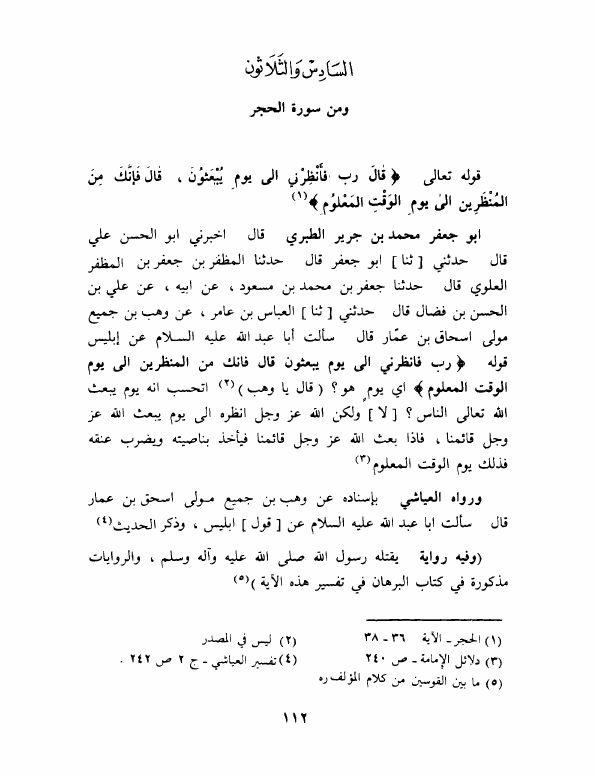 السَادِسْ وَالثَّلَاثوُن
ومن سورة الحجر
قوله تعالى ﴿ قَالَ رب فَأَنْظِرْني الى يوم يُبْعَثوُنَ ، قال فَإِنَّكَ مِنَ
المُنْظَرِين الىٰ يوم الوَقْتِ المَعْلوُم ﴾(١)
ابو جعفر محمد بن جرير الطبري قال اخبرني ابو الحسن علي
قال حدثني [ ثنا ] ابو جعفر قال حدثنا المظفر بن جعفر بن المظفر
العلوي قال حدثنا جعفر بن محمد بن مسعود ، عن ابيه ، عن علي بن
الحسن بن فضال قال حدثني [ ثنا ] العباس بن عامر ، عن وهب بن جميع
مولى اسحاق بن عمّار قال سألت أبا عبد الله عليه السلام عن إبليس
قوله ﴿ رب فانظرني الى يوم يبعثون قال فانك من المنظرين الى يوم
الوقت المعلوم ﴾ اي يومٍ هو ؟ ( قال يا وهب )(٢) اتحسب انه يوم يبعث
الله تعالى الناس ؟ [ لا ] ولكن الله عز وجل انظره الى يوم يبعث الله عز
وجل قائمنا ، فاذا بعث الله عز وجل قائمنا فيأخذ بناصيته ويضرب عنقه
فذلك يوم الوقت المعلوم(٣)
ورواه العياشي بإسناده عن وهب بن جميع مولى اسحق بن عمار
قال سألت ابا عبد الله عليه السلام عن [ قول ] ابليس ، وذكر الحديث(٤)
(وفيه رواية يقتله رسول الله صلى الله عليه وآله وسلم ، والروايات
مذكورة في كتاب البرهان في تفسير هذه الآية )(٥)
(١) الحجر ـ الآية ٣٦ ـ ٣٨ (٢) ليس في المصدر
(٣) دلائل الإمامة ـ ص ٢٤٠ (٤) تفسير العياشي ـ ج ٢ ص ٢٤٢ .
(٥) ما بين القوسين من كلام المؤلف ره
١١٢